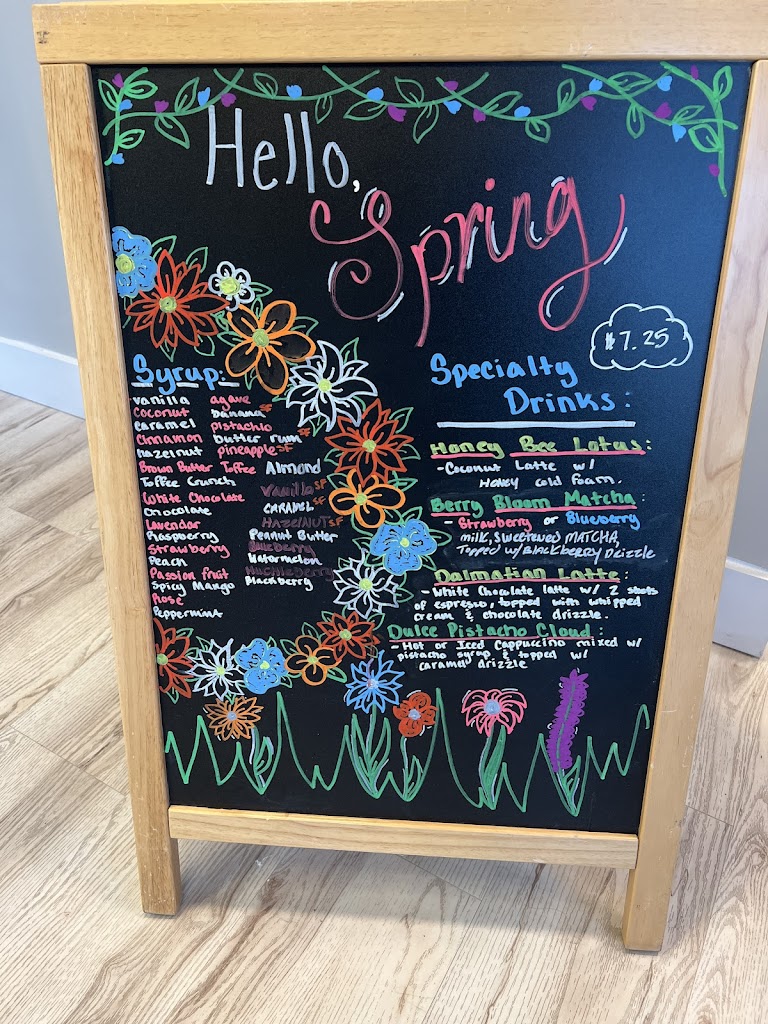 Hello,
Spring
$7.25
Syrup:
vanilla agave
coconut banana SF
caramel pistachio
cinnamon butter rum SF
hazelnut pineapple SF
Brown Butter Toffee Almond
Toffee Crunch
Vanilla SF
White Chocolate
Chocolate CARAMEL SF
Lavendar HAZELNUT SF
Raspberry Peanut Butter
Strawberry Blueberry
Peach Watermelon
Passion fruit Huckleberry
Spicy Mango Blackberry
Rose
Peppermint
Specialty
Drinks:
Honey Bee Lotus:
-Coconut Latte w/
Honey cold foam.
Berry Bloom Matcha:
- Strawberry or Blueberry
milk, sweetened MATCHA,
Topped w/ BlackBerry Drizzle
Dalmatian Latte:
- White Chocolate latte w/ 2 shots
of espresso, topped with whipped
cream & chocolate drizzle.
Dulce Pistacho Cloud:
- Hot or Iced Cappuccino mixed w/
pistacho syrup & topped w/
caramel drizzle